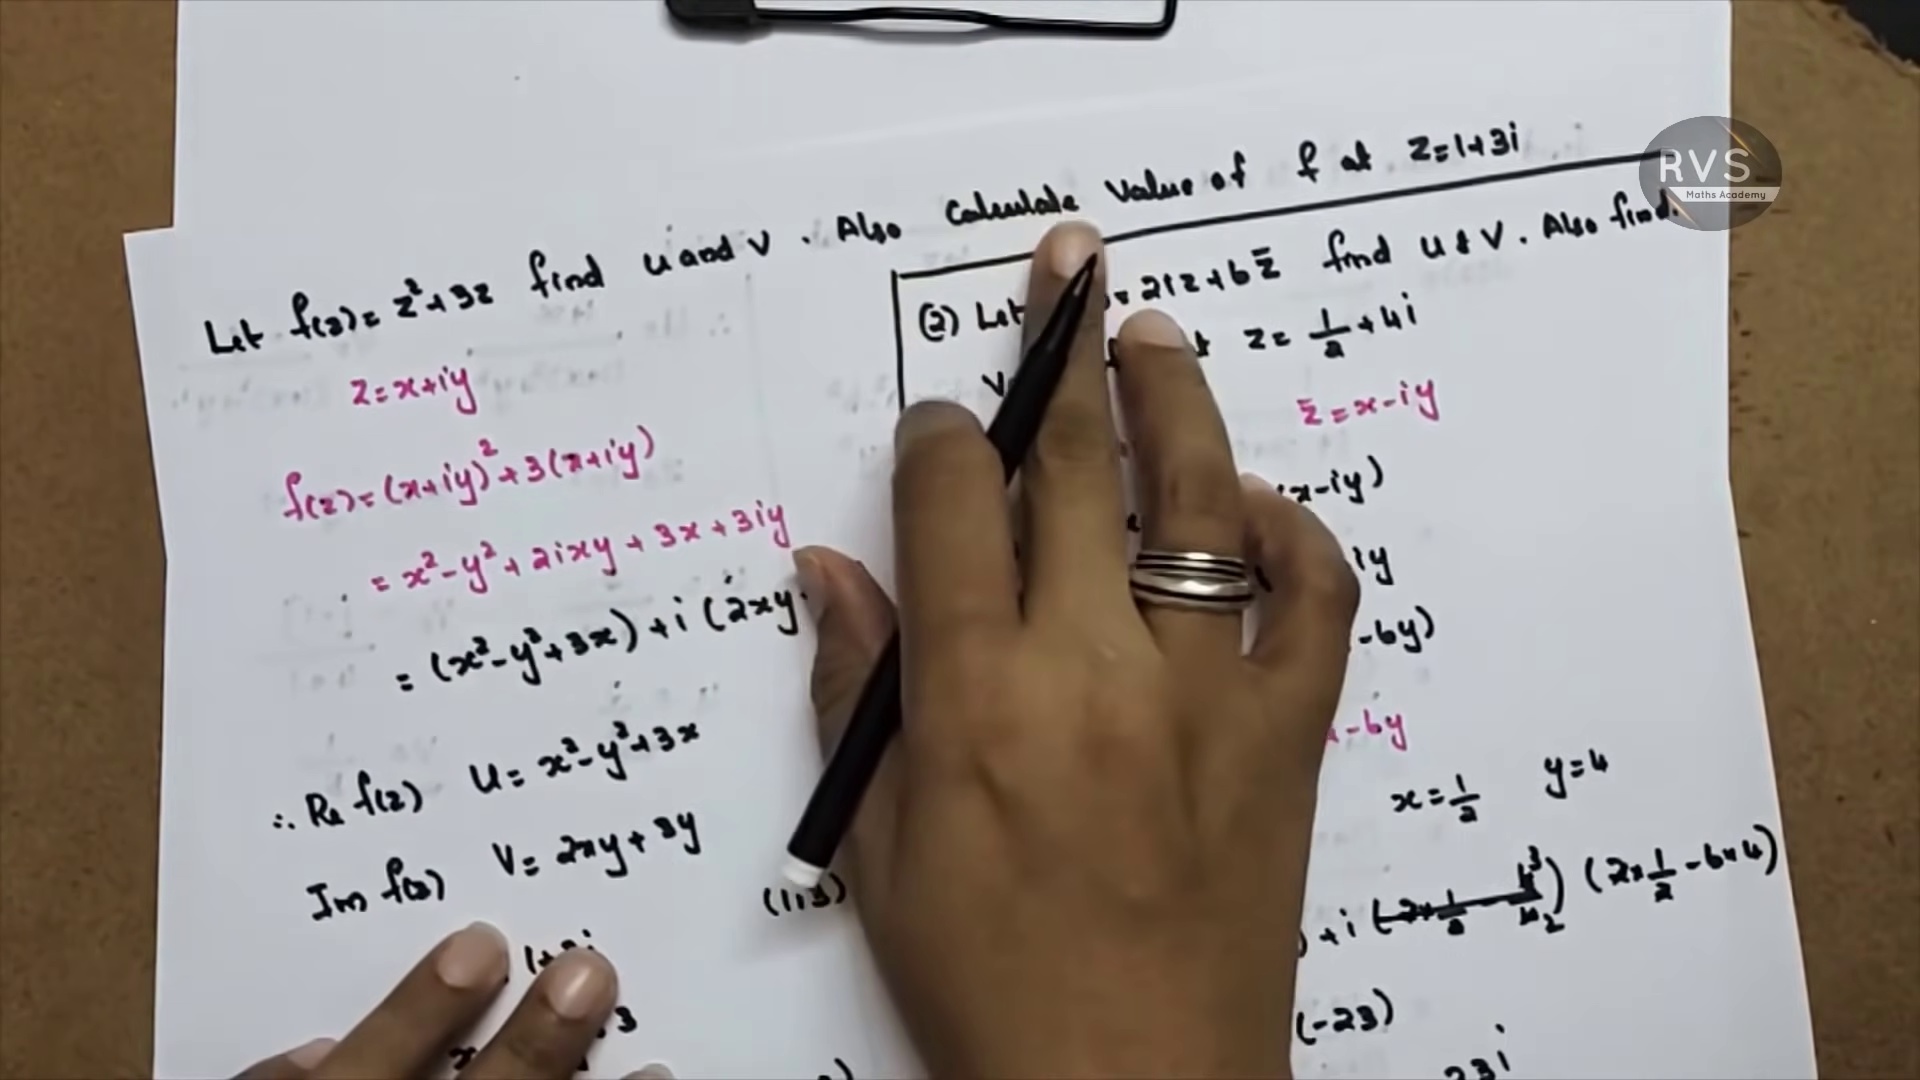 Let f(z) = z² + 3z find u and v. Also Calculate Value of f at z = 1+3i
z = x+iy
f(z) = (x+iy)² + 3(x+iy)
= x² - y² + 2ixy + 3x + 3iy
= (x² - y² + 3x) + i (2xy
∴ Re f(z) u = x² - y² + 3x
Im f(z) v = 2xy + 3y
(1,3)
3
(2) Let = 2iz + 6z̄ find u & v. Also find.
z = 1/2 + 4i
z̄ = x - iy
x - iy)
iy
- 6y)
- 6y
x = 1/2 y = 4
+ i (2×1/2 - 6×4)
(-23)
23i
RVS
Maths Academy